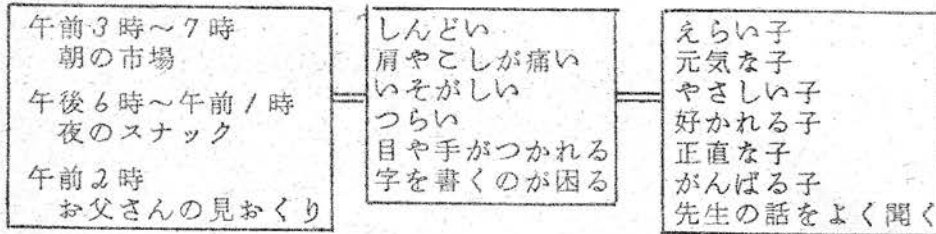 午前3時~7時
朝の市場
午後6時~午前1時
夜のスナック
午前2時
お父さんの見おくり
しんどい
肩やこしが痛い
いそがしい
つらい
目や手がつかれる
字を書くのが困る
えらい子
元気な子
やさしい子
好かれる子
正直な子
がんばる子
先生の話をよく聞く